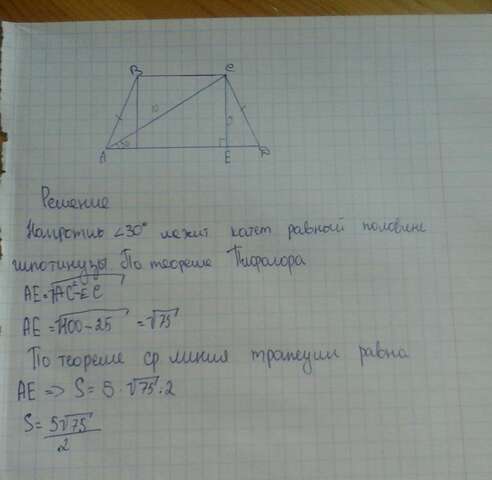 B C
10
5
A 30 E D
Решение
Напротив ∠30° лежит катет равный половине
гипотинузы. По теореме Пифагора
AE=√AC²-EC
AE = √100-25 = √75
По теореме ср линия трапеции равна
AE => S = 5 · √75 · 2
S = 5√75
2